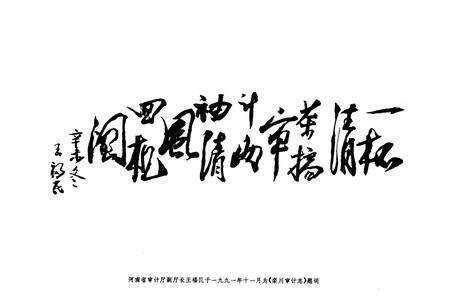 一杯
清
茶搞
审
计两
袖清
风
辛未冬
王福民
河南省审计厅副厅长王福民于一九九一年十一月为《栾川审计志》题词